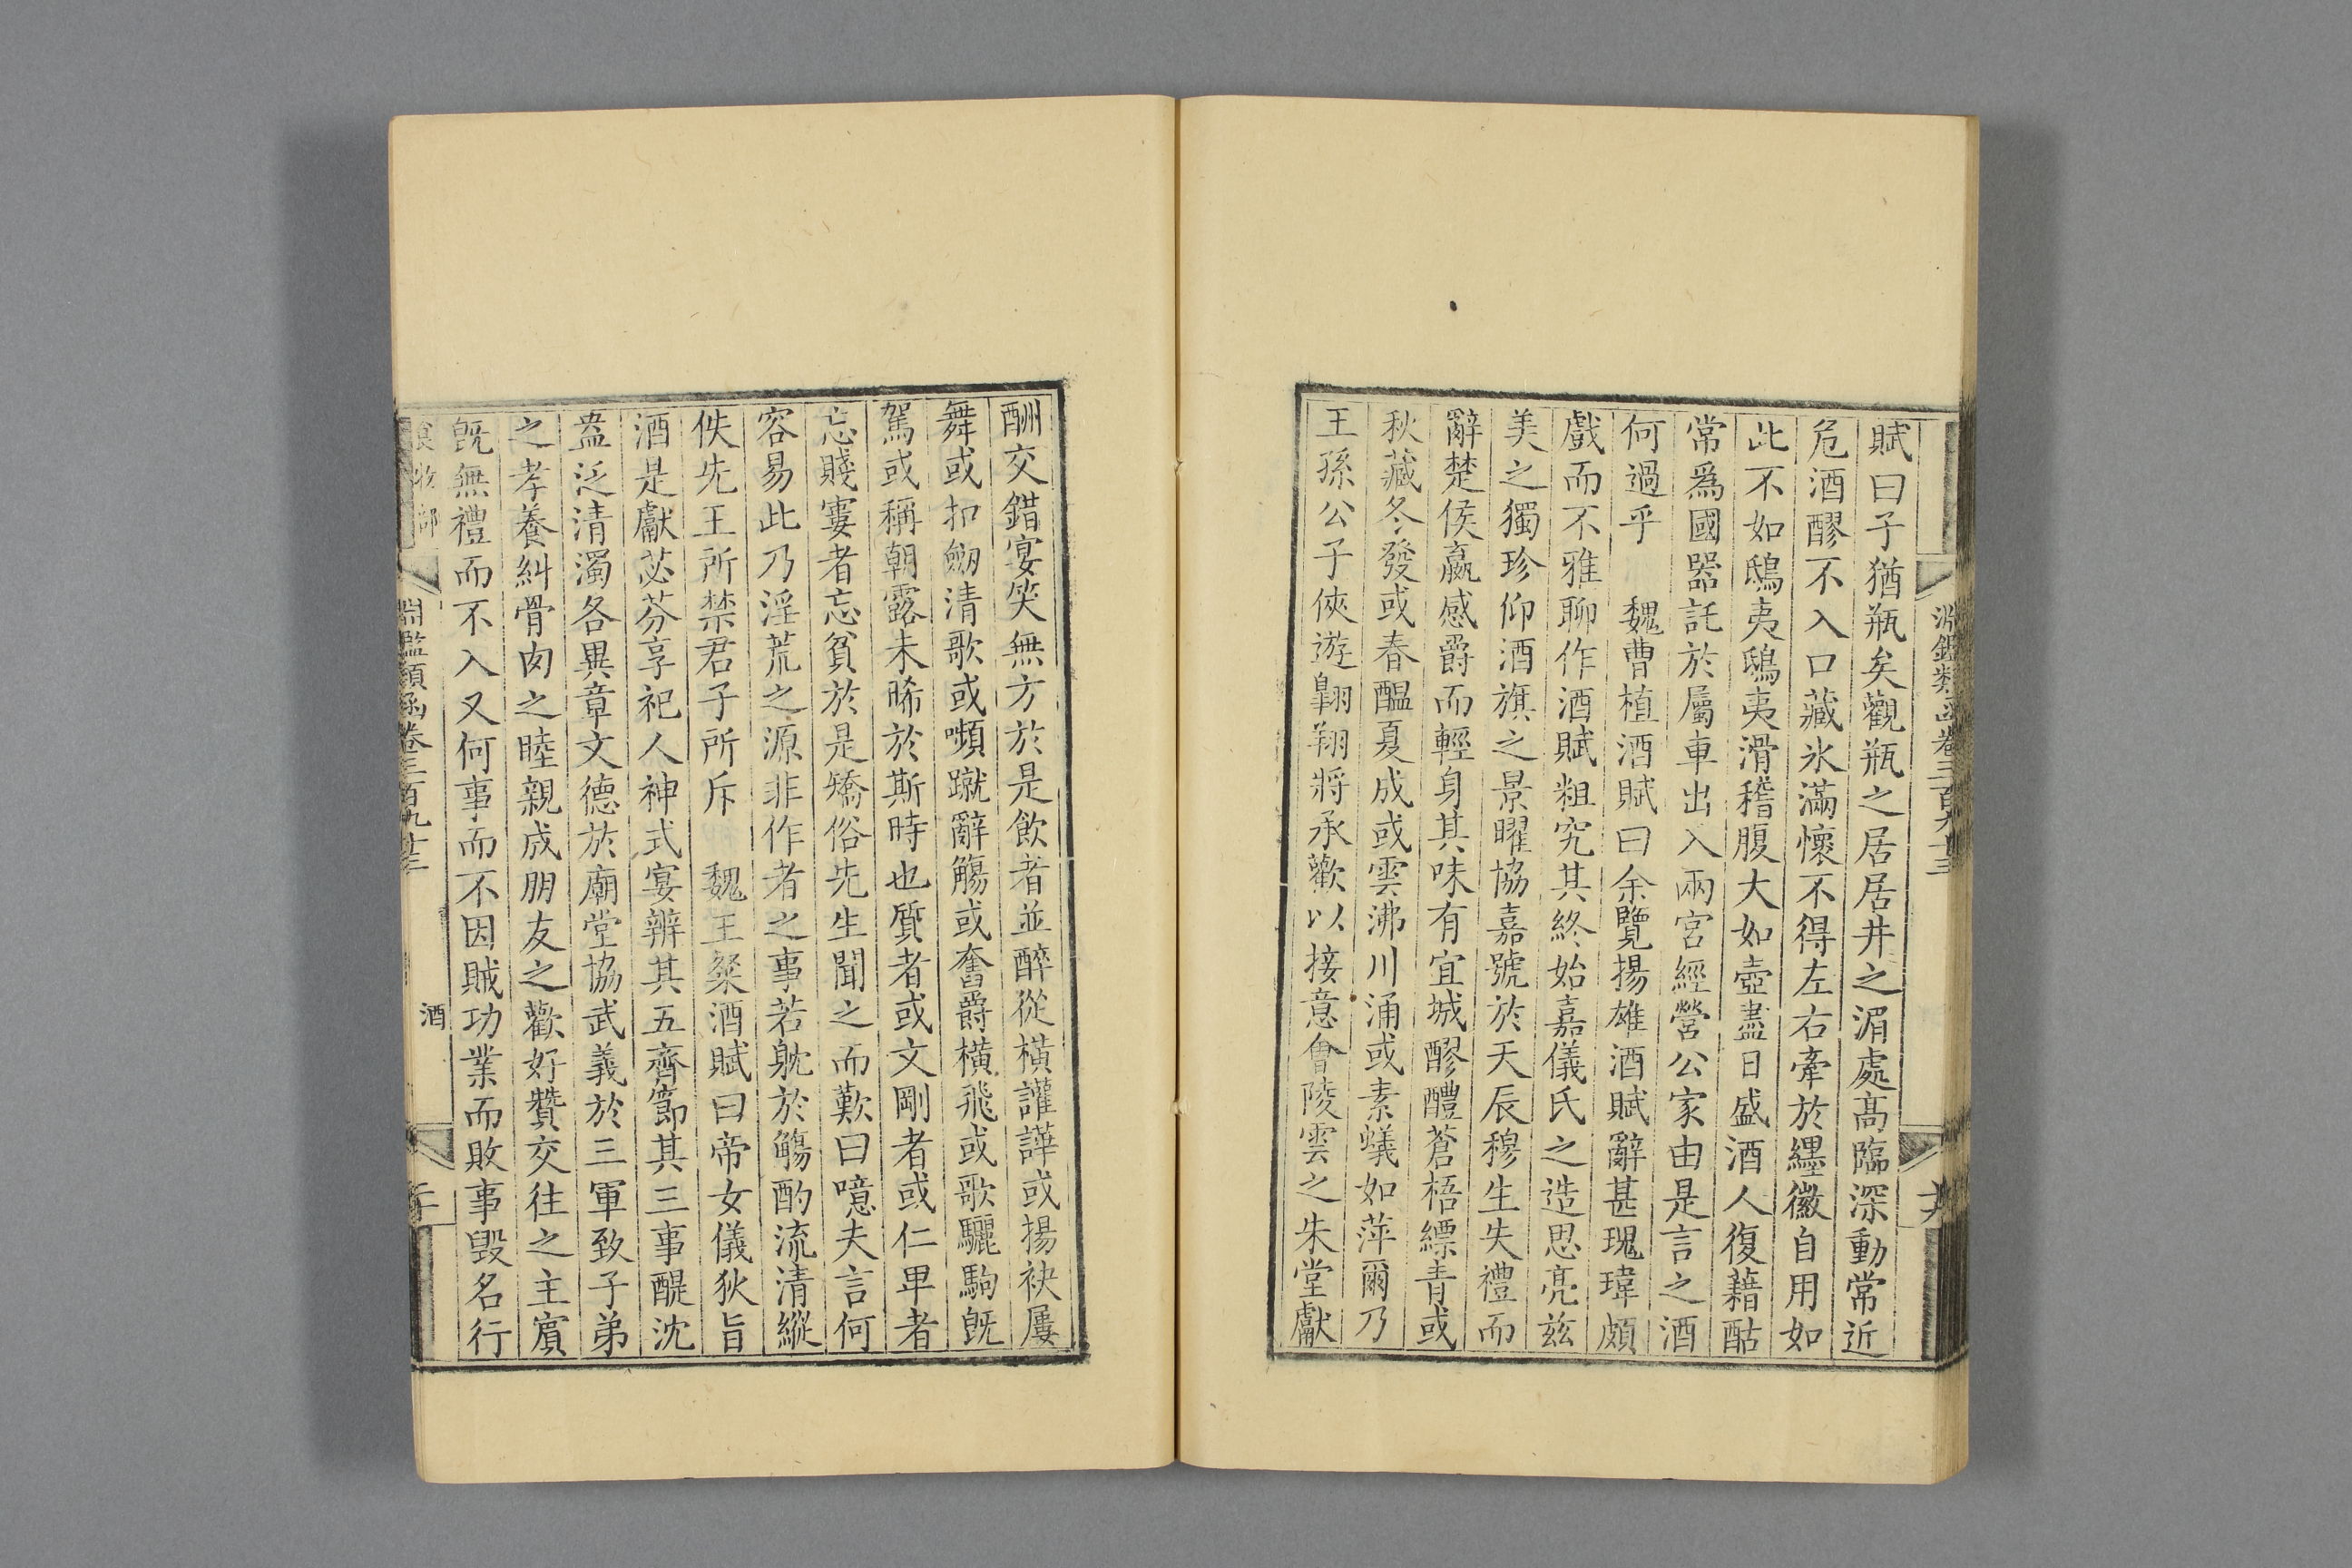 淵鑑類函卷三百九十三
賦曰子猶瓶矣觀瓶之居居井之湄處高臨深動常近
危酒醪不入口藏水滿懷不得左右牽於纆徽自用如
此不如鴟夷鴟夷滑稽腹大如壺盡日盛酒人復藉酤
常爲國器託於屬車出入兩宮經營公家由是言之酒
何過乎　魏曹植酒賦曰余覽揚雄酒賦辭甚瑰瑋頗
戲而不雅聊作酒賦粗究其終始嘉儀氏之造思亮茲
美之獨珍仰酒旗之景曜協嘉號於天辰穆生失禮而
辭楚侯嬴感爵而輕身其味有宜城醪醴蒼梧縹青或
秋藏冬發或春醞夏成或雲沸川涌或素蟻如萍爾乃
王孫公子俠遊翺翔將承歡以接意會陵雲之朱堂獻
酬交錯宴笑無方於是飲者並醉從橫讙譁或揚袂屢
舞或扣劒清歌或嚬蹴辭觴或奮爵橫飛或歌驪駒旣
駕或稱朝露未晞於斯時也質者或文剛者或仁卑者
忘賤窶者忘貧於是矯俗先生聞之而歎曰噫夫言何
容易此乃淫荒之源非作者之事若躭於觴酌流清縱
佚先王所禁君子所斥　魏王粲酒賦曰帝女儀狄旨
酒是獻苾芬享祀人神式宴辨其五齊節其三事醍沈
盎泛清濁各異章文德於廟堂協武義於三軍致子弟
之孝養糾骨肉之睦親成朋友之歡好贊交往之主賓
旣無禮而不入又何事而不因賊功業而敗事毀名行
食物部
淵鑑類函卷三百九十三
酒